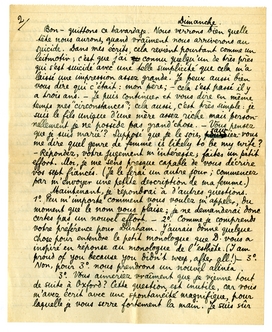 2/
Dimanche.
Bon - quittons ce bavardage. Nous verrons bien quelle
tête nous aurons, quand vraiment nous arriverons au
suicide. Dans mes écrits, cela revient pourtant comme un
leitmotiv; c'est que j'ai connu quelqu'un de très près
qui s'est suicidé avec une telle simplicité que cela m'a
laissé une impression assez grande. Je peux aussi bien
vous dire qui c'était: mon père; cela s'est passé il y
a trois ans. - Je suis curieuse: et vous dire "en même
temps mes circonstances"; cela aussi, c'est très simple: je
suis le fils unique d'une mère assez riche, mais person-
nellement je ne possède pas grand'chose. - Vous pensez
que je suis marié? Suppose que je le sois,
me dire quel genre de femme is likely to be my wife?
- Répondez, votre jugement m'intrigue; faites un petit
effort. Moi, je me sens presque capable de vous décrire
vos sept francs. (Je le ferai un autre jour; commencez
par m'envoyer une petite description de ma femme.)
Maintenant, je répondrai à d'autres questions.
1°. Peu m'importe comment vous voulez m'appeler, du
moment que le nom vous plaise; je ne demanderai donc
certes pas un nouvel effort. - 2°. Comme je comprends
votre préférence pour Durham. J'aurais donné quelque
chose pour entendre le petit monologue que D. vous a
inspiré en réponse au monologue de l'            (I am
proud of you because you didn't weep, after all!) - 3°.
Non, pour 3°. nous prendrons un nouvel alinéa.
3°. Vous aimeriez vraiment que je vienne tout
de suite à Oxford? Cette question est inutile, car vous
m'avez écrit avec une spontanéité magnifique, pour
laquelle je vous serre fortement la main. Je suis sûr